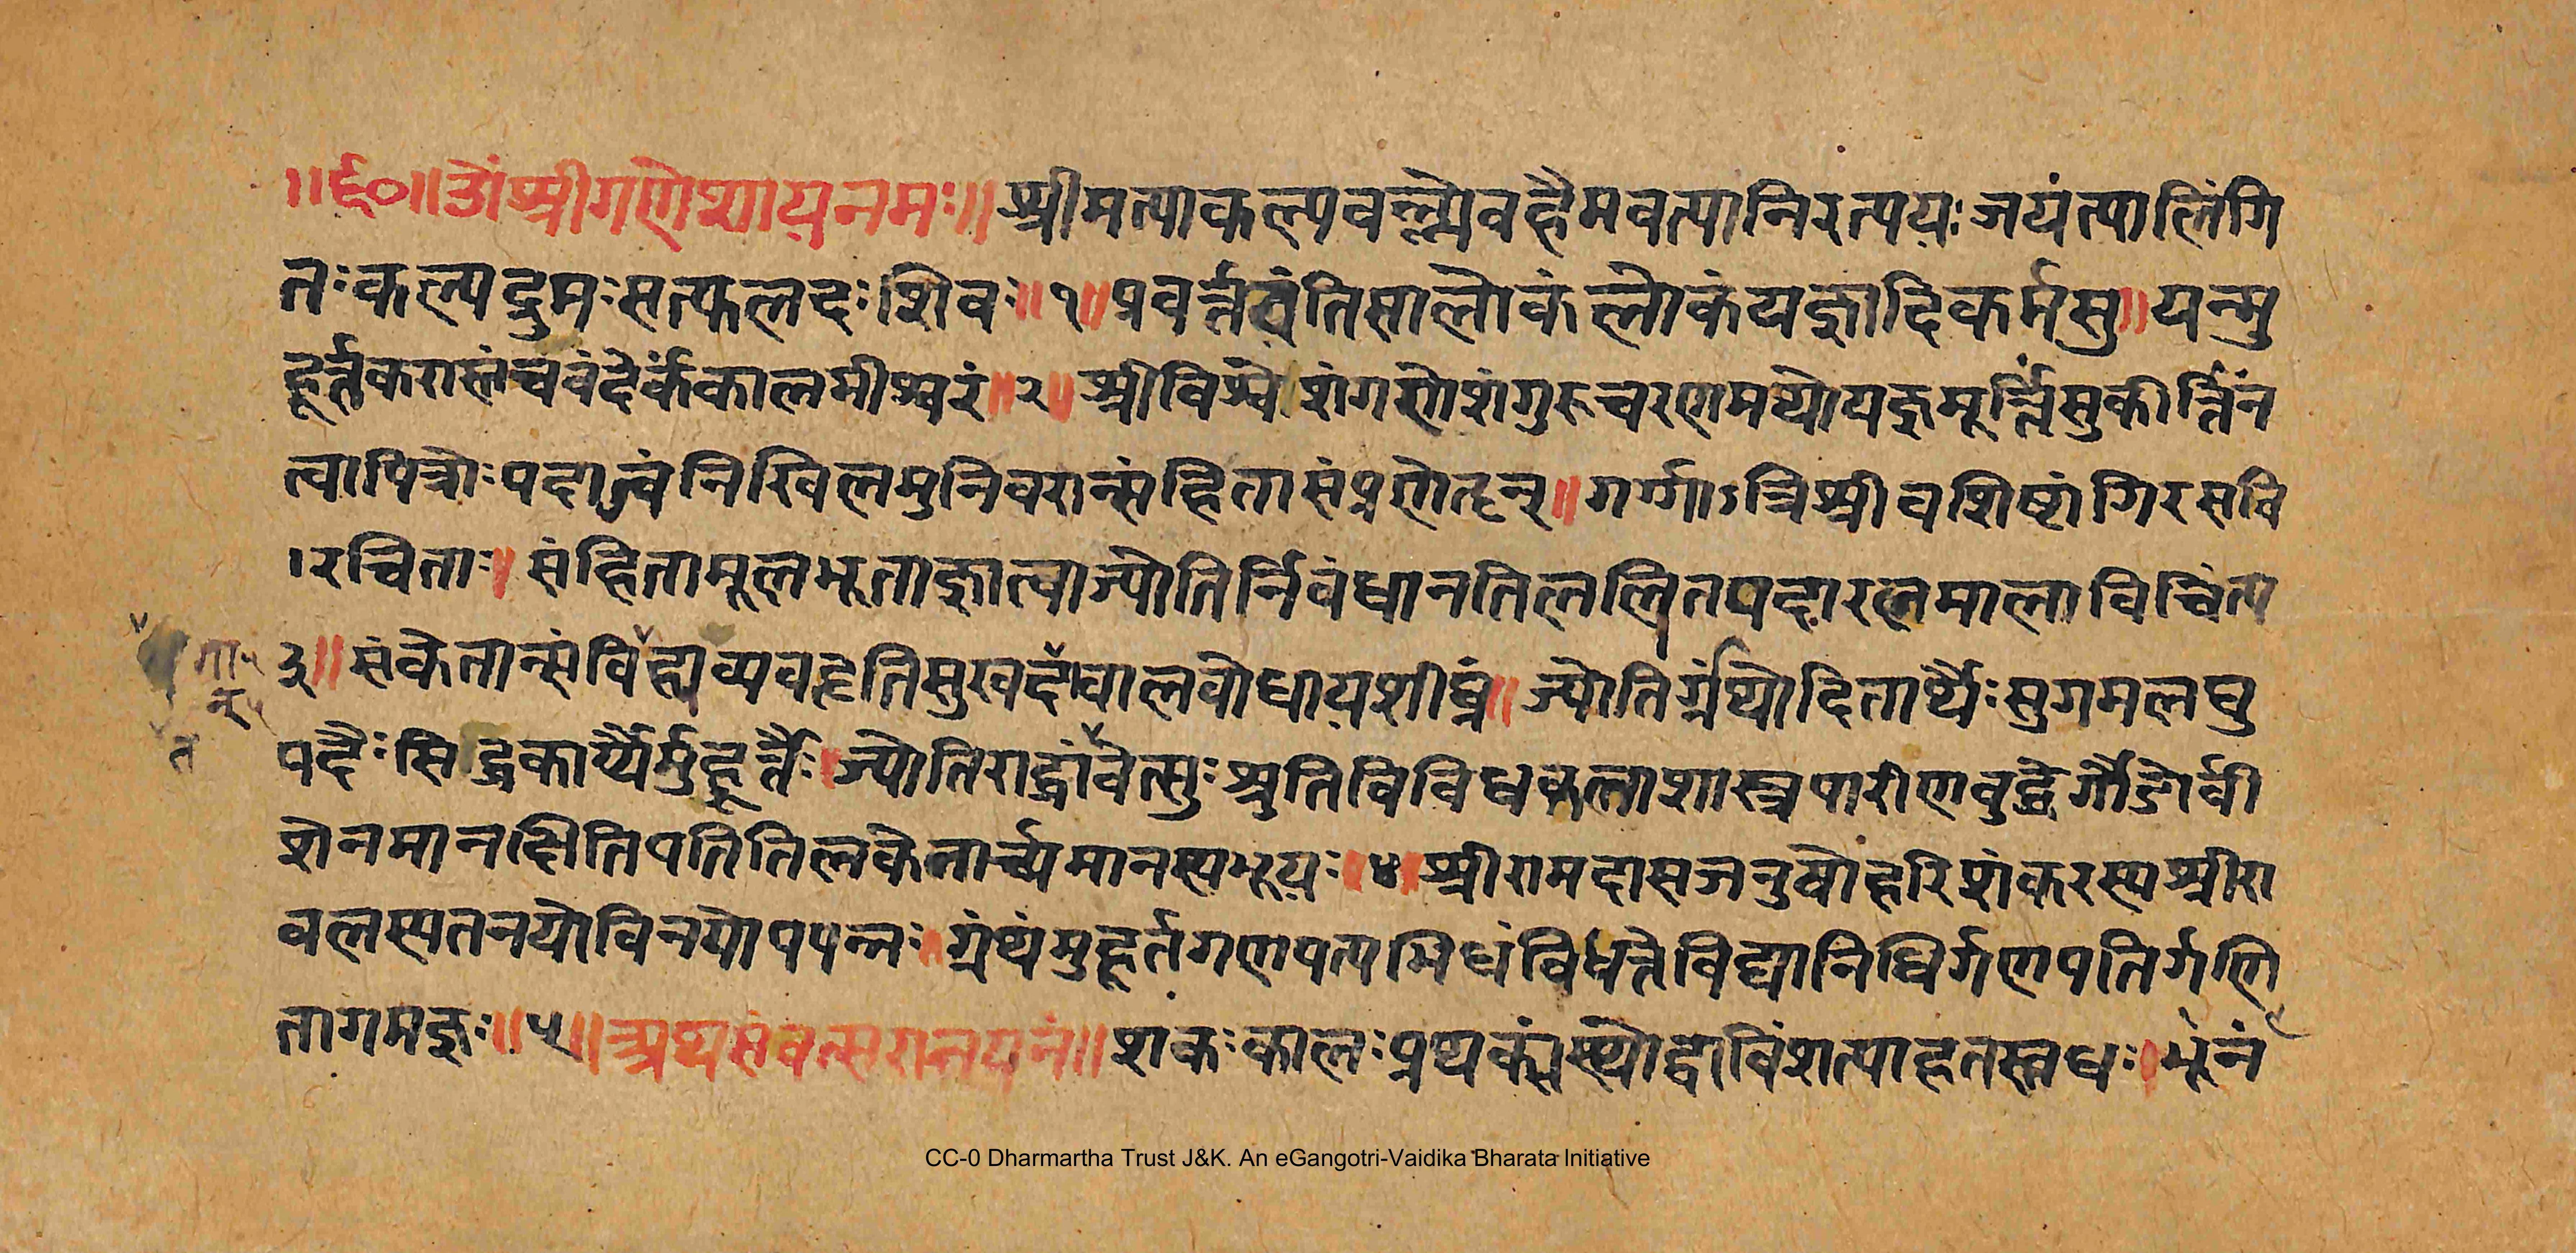 ॥६०॥ॐश्रीगणेशायनमः॥श्रीमत्पाकल्पवल्ल्येवहैमवत्यानिरत्ययः जयंत्यालिंगि
तःकल्पद्रुमःसत्फलदःशिवः॥१॥प्रवर्त्तयंतिसालोकंलोकंयज्ञादिकर्मसु॥यन्मु
हूर्त्तकरास्तंचवंदेर्कंकालमीश्वरं॥२॥श्रीविश्वेशंगणेशंगुरुचरणमथोयज्ञमूर्त्तिंसुकीर्त्तिंन
त्वापित्रोःपदाब्जंनिखिलमुनिवरान्संहितासंप्रणेतॄन्॥गर्ग्गाऽत्रिश्रीवशिष्टांगिरसवि
।रचिताः॥संहितामूलभूताज्ञात्वाज्योतिर्निबंधानतिललितपदारत्नमालाविचिंत्य
३॥संकेतान्संविहायव्यवहृतिसुखदोबालबोधायशीघ्रं॥ज्योतिर्ग्रंथोदितार्थैःसुगमलघु
पदैःसिद्धकार्य्यैर्मुहूर्त्तैः।ज्योतिराद्धांवेत्सुःश्रुतिविविधकलाशास्त्रपारीणबुद्धेर्गौडोर्वी
शेनमानक्षितिपतितिलकेनार्च्यमानस्यभूयः॥४॥श्रीरामदासजनुषोहरिशंकरस्यश्रीरा
वलस्यतनयोविनयोपपन्नः॥ग्रंथंमुहूर्तगणपत्यभिधंविधत्तेविद्यानिधिर्गणपतिर्गणि
तागमज्ञः॥५॥अथसंवत्सरानयनं॥शकःकालःप्रथक्संस्थोद्वाविंशत्याहतस्त्वधः।भूनं
CC-0 Dharmartha Trust J&K. An eGangotri-Vaidika Bharata Initiative